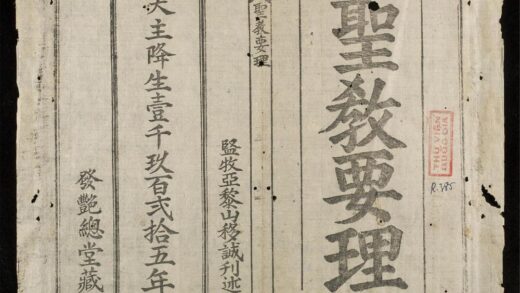 聖教要理
THƯ VIỆN
QUỐC GIA
監牧亞黎山移誠刊述
聖教要理
天主降生壹千玖百弍拾五年
發艷總堂藏